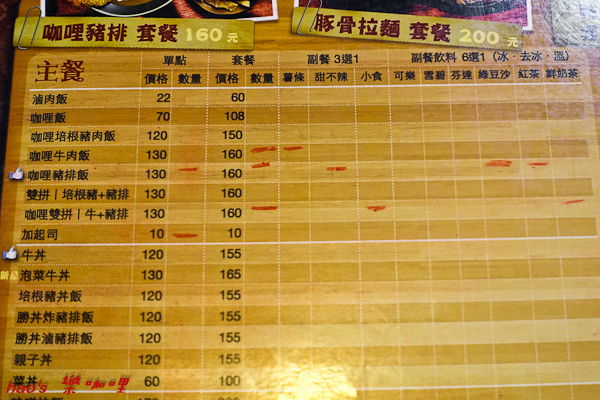 咖哩豬排 套餐 160元
豚骨拉麵 套餐 200元
主餐 單點 套餐 副餐 3選1 副餐飲料 6選1（冰·去冰·溫）
價格 數量 價格 數量 薯條 甜不辣 小食 可樂 雪碧 芬達 綠豆沙 紅茶 鮮奶茶
滷肉飯 22 60
咖哩飯 70 108
咖哩培根豬肉飯 120 150
咖哩牛肉飯 130 160
咖哩豬排飯 130 160
雙拼｜培根豬+豬排 130 160
咖哩雙拼｜牛+豬排 130 160
加起司 10 10
牛丼 120 155
泡菜牛丼 130 165
培根豬丼飯 120 155
勝丼炸豬排飯 120 155
勝丼滷豬排飯 120 155
親子丼 120 155
菜丼 60 100
hao's 樂咖哩